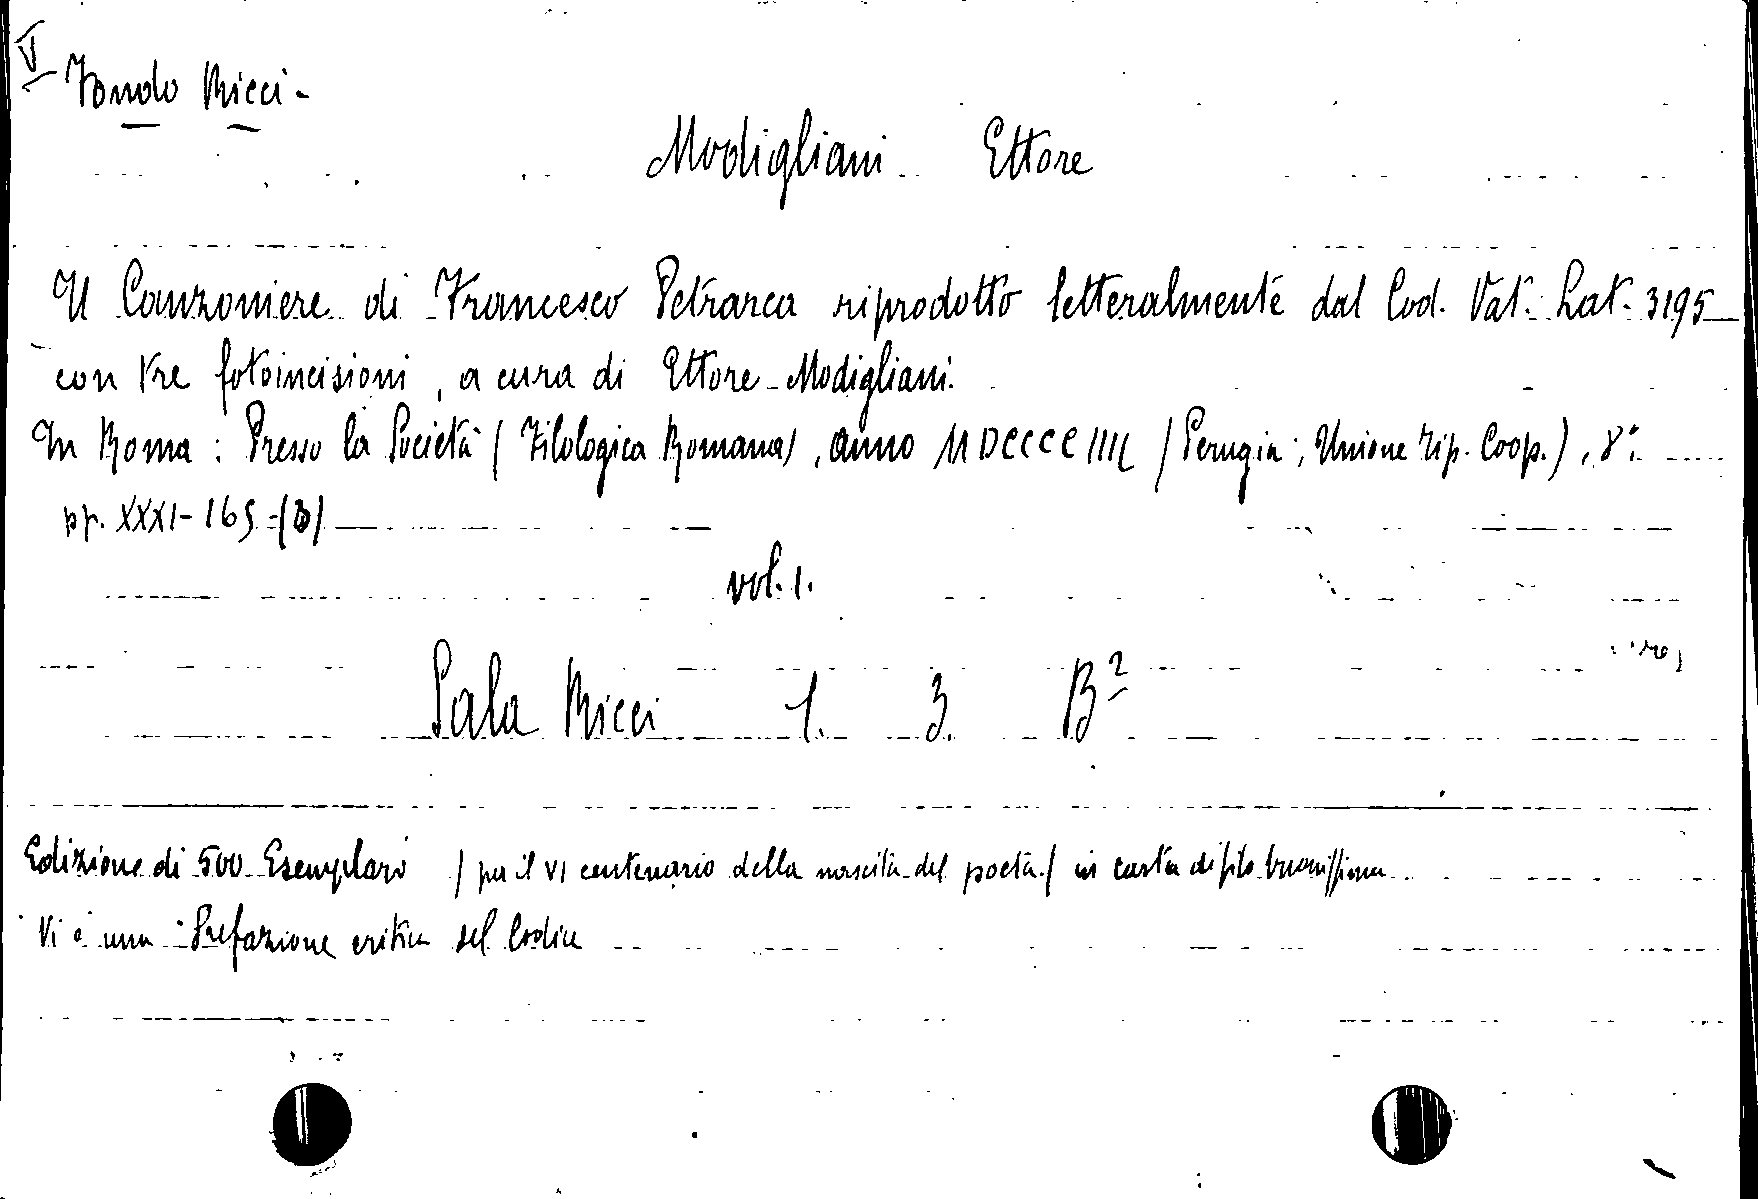 V
Fondo Ricci -
Modigliani Ettore
Il Canzoniere di Francesco Petrarca riprodotto letteralmente dal Cod. Vat. Lat. 3195
con tre fotoincisioni, a cura di Ettore Modigliani.
In Roma: Presso la Società (Filologica Romana), anno MDCCCCIIII (Perugia; Unione Tip. Coop.), 8°.
pp. XXXI-165-(3)
vol. 1.
Sala Ricci 1. 3. B²
Edizione di 500 Esemplari (per il VI centenario della nascita del poeta) in carta di filo buonissima
Vi è una Prefazione critica sul Codice